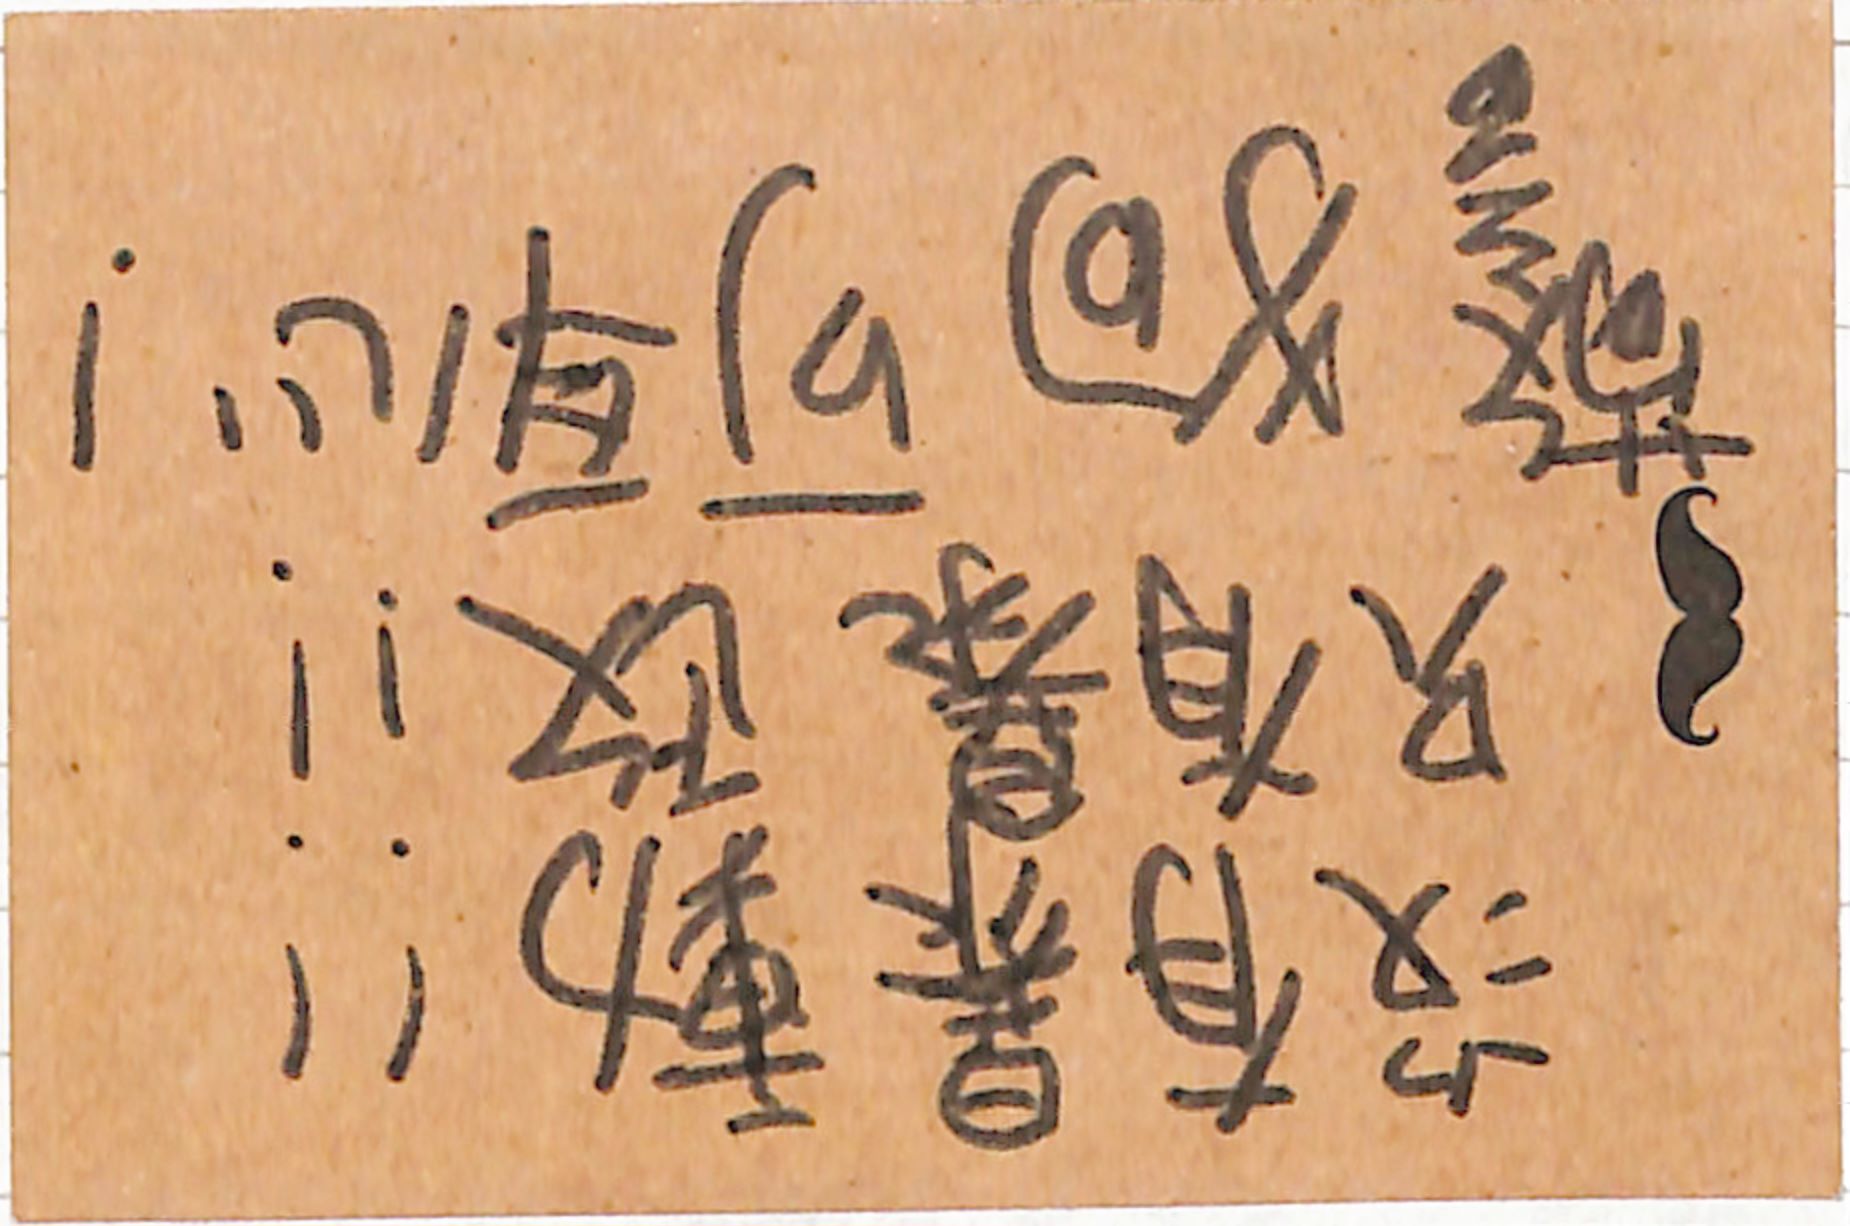 沒有暴動!!
只有暴政!!
警狗可恥!